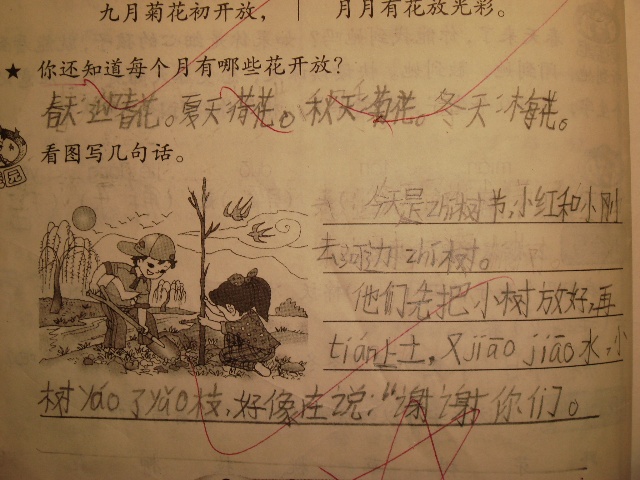 九月菊花初开放， 月月有花放光彩。
★ 你还知道每个月有哪些花开放？
春天：迎春花。夏天：荷花。秋天：菊花。冬天：梅花。
看图写几句话。
今天是zhí树节，小红和小刚
去河边zhí树。
他们先把小树放好，再
tián上土，又jiāo jiāo水，小
树yáo了yǎo枝，好像在说：“谢谢你们。